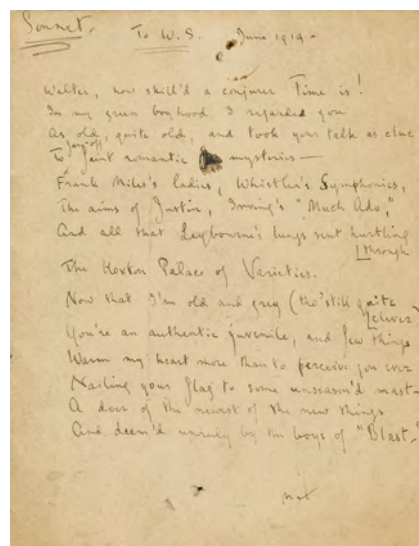 Sonnet.
To W.S. June 1919 -
Walter, how skill'd a conjurer Time is!
In my green boyhood I regarded you
As old, quite old, and took your talk as clue
To far-off faint romantic mysteries —
Frank Miles's ladies, Whistler's Symphonies,
The aims of Justin, Irving's "Much Ado,"
And all that Leybourne's lungs sent hurtling
through
The Hoxton Palace of Varieties.
Now that I'm old and grey (tho' still quite
clever)
You're an authentic juvenile, and few things
Warm my heart more than to perceive you ever
Nailing your flag to some unseason'd mast -
A doer of the newest of the new things
And deem'd unruly by the boys of "Blast."
Max